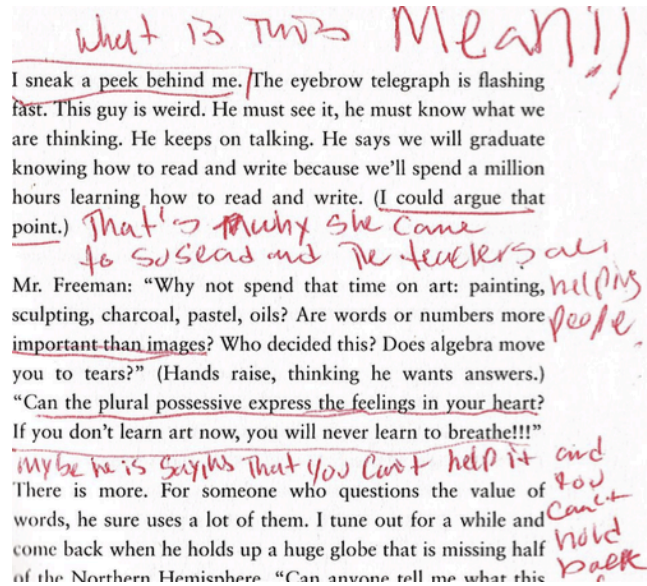 what is this Mean!!
I sneak a peek behind me. The eyebrow telegraph is flashing
fast. This guy is weird. He must see it, he must know what we
are thinking. He keeps on talking. He says we will graduate
knowing how to read and write because we’ll spend a million
hours learning how to read and write. (I could argue that
point.) That's why she came
to and The teachers all
helping
people
Mr. Freeman: “Why not spend that time on art: painting,
sculpting, charcoal, pastel, oils? Are words or numbers more
important than images? Who decided this? Does algebra move
you to tears?” (Hands raise, thinking he wants answers.)
“Can the plural possessive express the feelings in your heart?
If you don’t learn art now, you will never learn to breathe!!!”
mybe he is saying That you Can't help it and
you
can't
hold
back
There is more. For someone who questions the value of
words, he sure uses a lot of them. I tune out for a while and
come back when he holds up a huge globe that is missing half
of the Northern Hemisphere. “Can anyone tell me what this